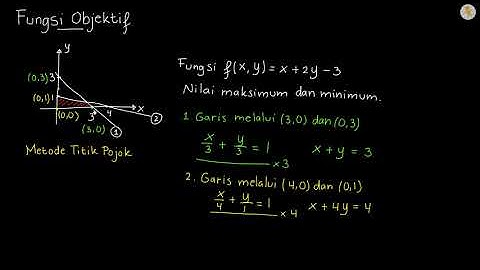 Fungsi Objektif
y
(0,3) 3
(0,1) 1
(0,0) 3 4 x
(3,0) 1 2
Metode Titik Pojok
Fungsi f(x,y) = x + 2y - 3
Nilai maksimum dan minimum.
1 Garis melalui (3,0) dan (0,3)
x/3 + y/3 = 1 x3 x + y = 3
2. Garis melalui (4,0) dan (0,1)
x/4 + y/1 = 1 x4 x + 4y = 4